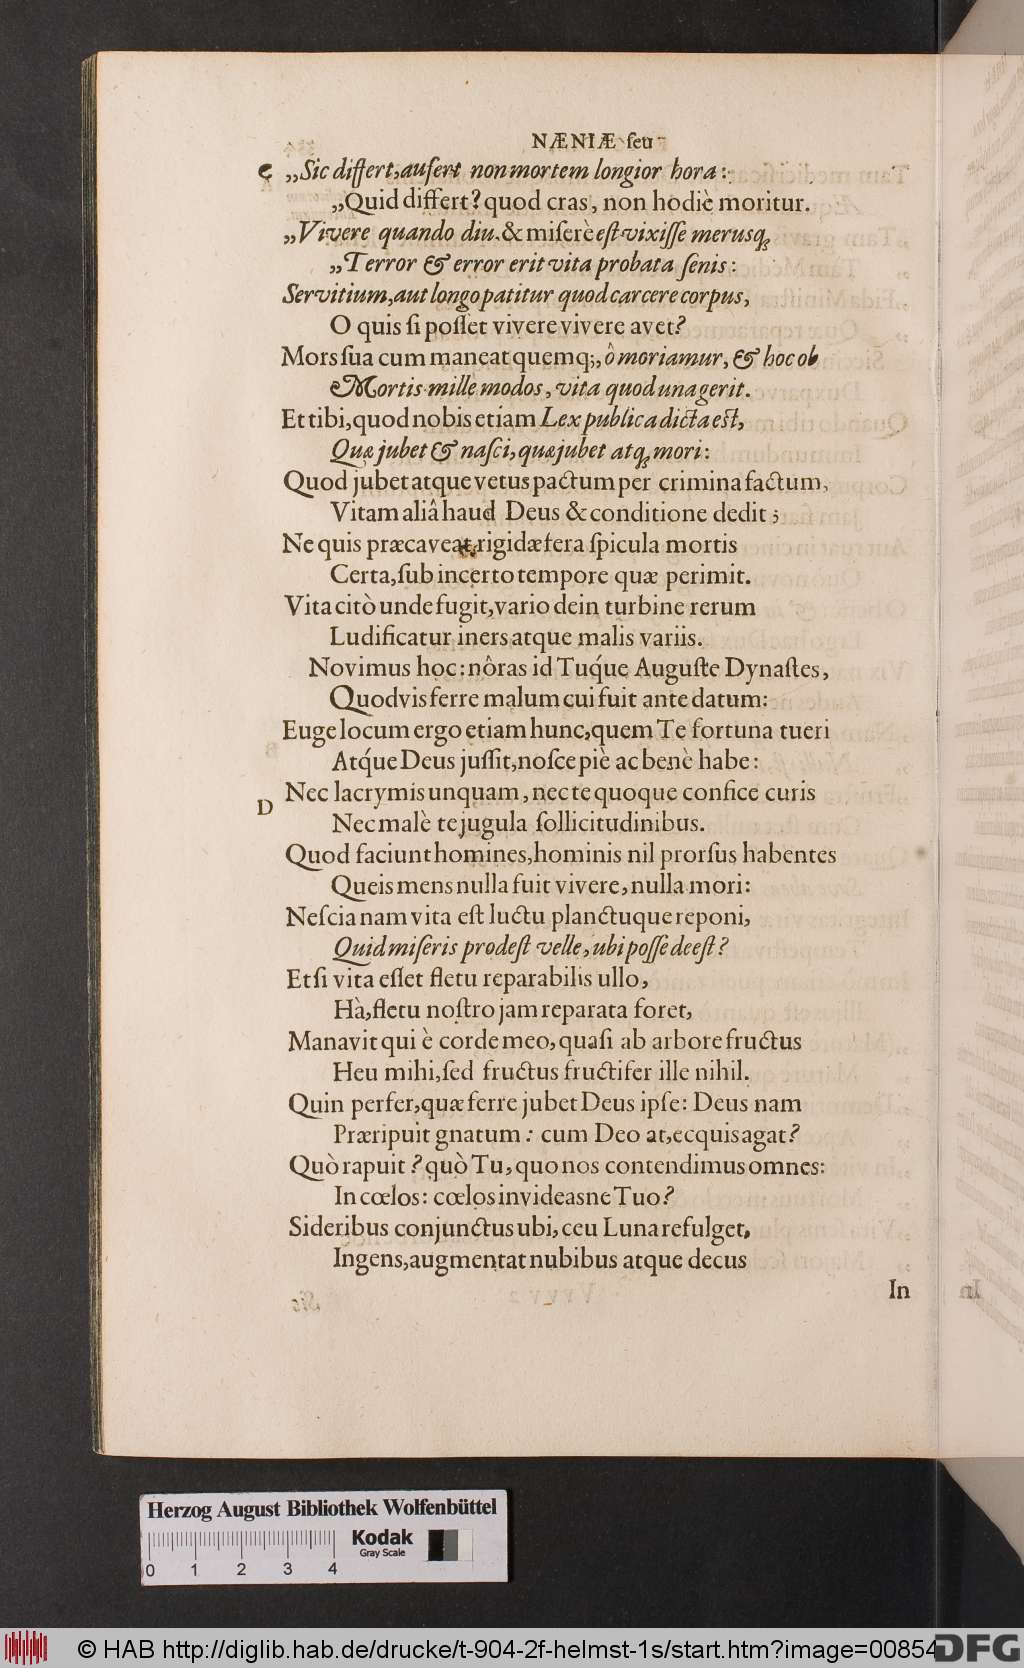 NÆNIÆ ſeu
C „Sic differt, aufert non mortem longior hora:
„Quid differt? quod cras, non hodiè moritur.
„Vivere quando diu, & miſerè eſt vixiſſe merusq́;
„Terror & error erit vita probata ſenis:
Servitium, aut longo patitur quod carcere corpus,
O quis ſi poſſet vivere vivere avet?
Mors ſua cum maneat quemq;, ô moriamur, & hoc ob
Mortis mille modos, vita quod una gerit.
Et tibi, quod nobis etiam Lex publica dicta eſt,
Quæ jubet & naſci, quæ jubet atq; mori:
Quod jubet atque vetus pactum per crimina factum,
Vitam aliâ haud Deus & conditione dedit;
Ne quis præcaveat rigidæ fera ſpicula mortis
Certa, ſub incerto tempore quæ perimit.
Vita citò unde fugit, vario dein turbine rerum
Ludificatur iners atque malis variis.
Novimus hoc: nôras id Tuq́ue Auguſte Dynaſtes,
Quodvis ferre malum cui fuit ante datum:
Euge locum ergo etiam hunc, quem Te fortuna tueri
Atq́ue Deus juſſit, noſce piè ac benè habe:
D Nec lacrymis unquam, nec te quoque confice curis
Nec malè te jugula ſollicitudinibus.
Quod faciunt homines, hominis nil prorſus habentes
Queis mens nulla fuit vivere, nulla mori:
Neſcia nam vita eſt luctu planctuque reponi,
Quid miſeris prodeſt velle, ubi poſſe deeſt?
Etſi vita eſſet fletu reparabilis ullo,
Hà, fletu noſtro jam reparata foret,
Manavit qui è corde meo, quaſi ab arbore fructus
Heu mihi, ſed fructus fructifer ille nihil.
Quin perfer, quæ ferre jubet Deus ipſe: Deus nam
Præripuit gnatum: cum Deo at, ecquis agat?
Quò rapuit? quò Tu, quo nos contendimus omnes:
In cœlos: cœlos invideasne Tuo?
Sideribus conjunctus ubi, ceu Luna refulget,
Ingens, augmentat nubibus atque decus
In
Herzog August Bibliothek Wolfenbüttel
Kodak
Gray Scale
0 1 2 3 4
© HAB http://diglib.hab.de/drucke/t-904-2f-helmst-1s/start.htm?image=00854
DFG